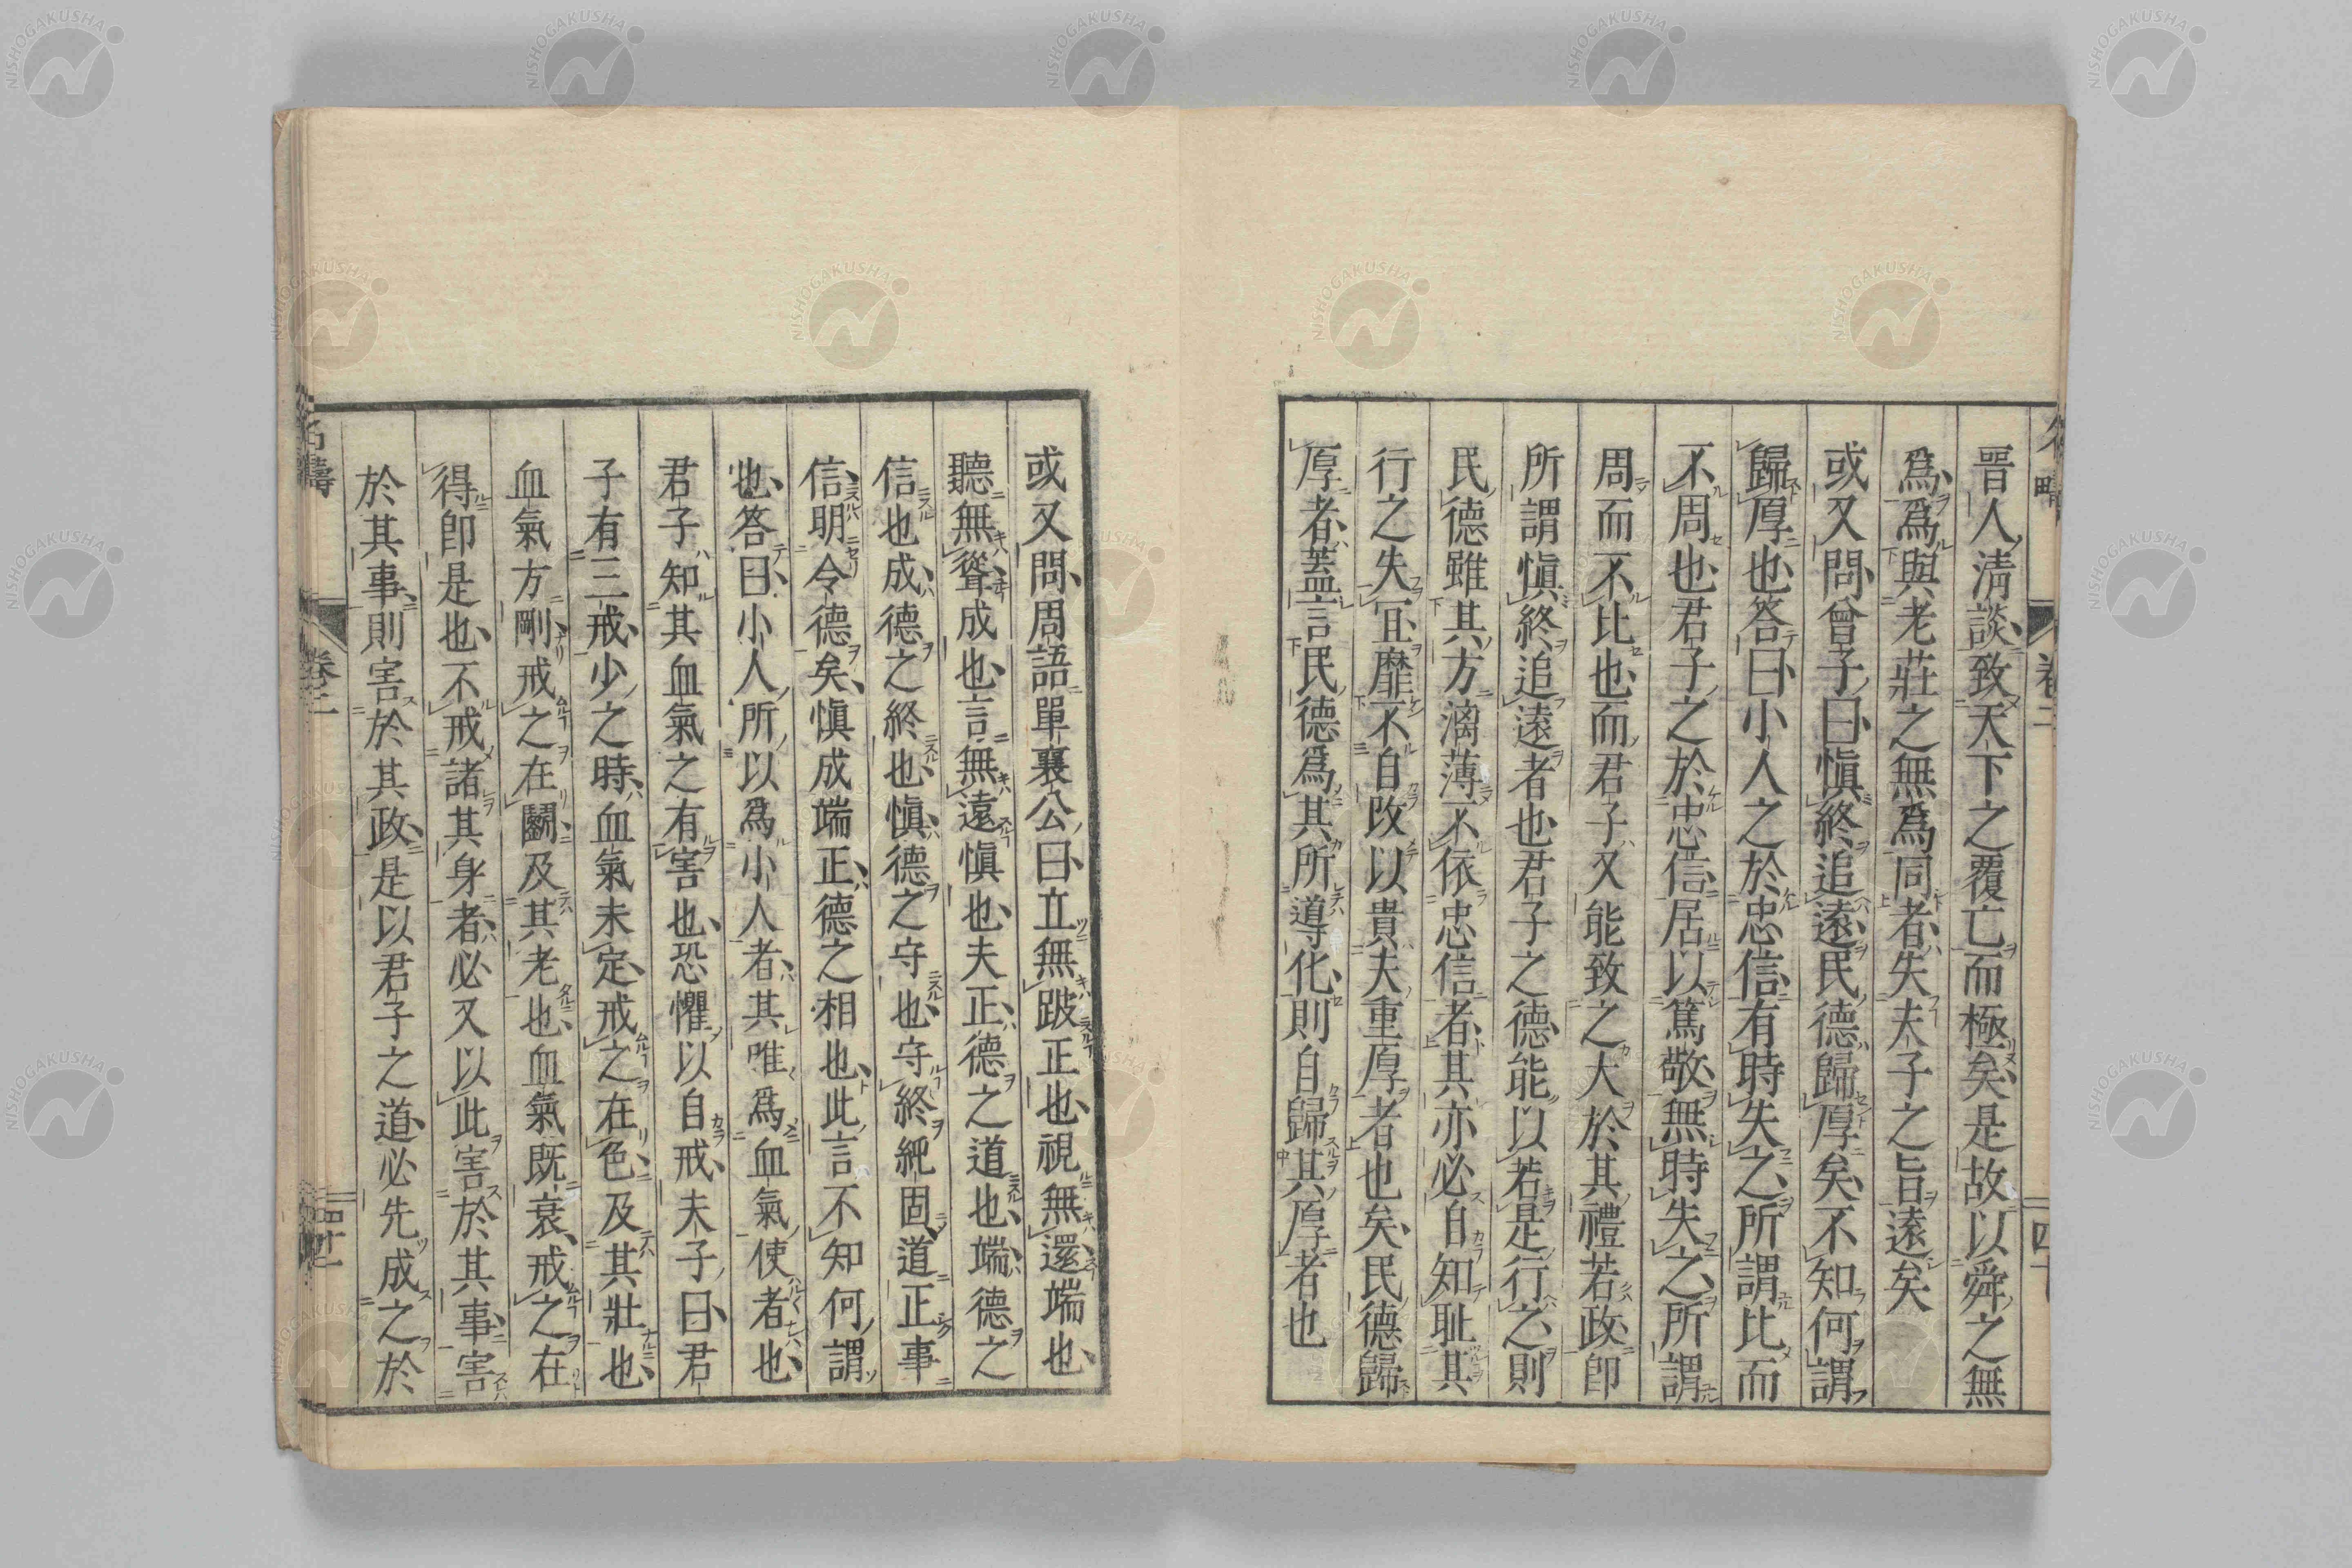 晉人清談致天下之覆亡而極矣是故以舜之無
爲爲與老莊之無爲同者失夫子之旨遠矣
或又問曾子曰愼終追遠民德歸厚矣不知何謂
歸厚也答曰小人之於忠信有時失之所謂比而
不周也君子之於忠信居以篤敬無時失之所謂
周而不比也而君子又能致之大於其禮若政卽
所謂愼終追遠者也君子之德能以若是行之則
民德雖其方漓薄不依忠信者其亦必自知恥其
行之失宐靡不自改以貴夫重厚者也矣民德歸
厚者蓋言民德爲其所導化則自歸其厚者也
或又問周語單襄公曰立無跛正也視無還端也
聽無聳成也言無遠愼也夫正德之道也端德之
信也成德之終也愼德之守也守終純固道正事
信明令德矣愼成端正德之相也此言不知何謂
也答曰小人所以爲小人者其唯爲血氣使者也
君子知其血氣之有害也恐懼以自戒夫子曰君
子有三戒少之時血氣未定戒之在色及其壯也
血氣方剛戒之在鬭及其老也血氣既衰戒之在
得卽是也不戒諸其身者必又以此害於其事害
於其事則害於其政是以君子之道必先成之於
名疇
卷二
NISHOGAKUSHA